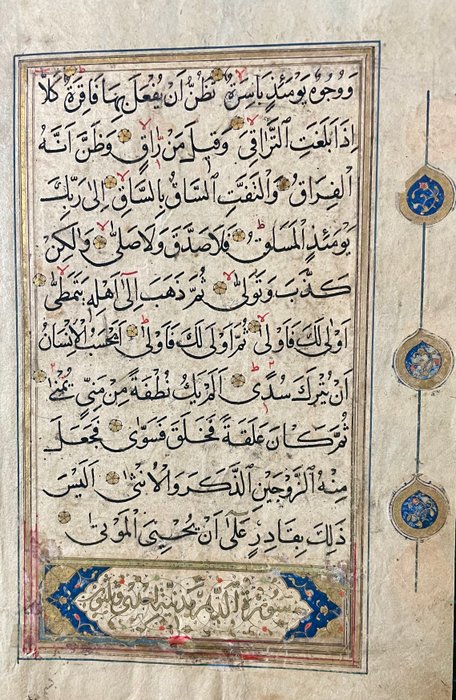 وَوُجُوهٌ يَوْمَئِذٍ بَاسِرَةٌ تَظُنُّ اَنْ يُفْعَلَ بِهَا فَاقِرَةٌ كَلَّا
اِذَا بَلَغَتِ التَّرَاقِيَ وَقِيلَ مَنْ رَاقٍ وَظَنَّ اَنَّهُ
الْفِرَاقُ وَالْتَفَّتِ السَّاقُ بِالسَّاقِ اِلٰى رَبِّكَ
يَوْمَئِذٍ الْمَسَاقُ فَلَا صَدَّقَ وَلَا صَلّٰى وَلٰكِنْ
كَذَّبَ وَتَوَلّٰى ثُمَّ ذَهَبَ اِلٰٓى اَهْلِهٖ يَتَمَطّٰى
اَوْلٰى لَكَ فَاَوْلٰى ثُمَّ اَوْلٰى لَكَ فَاَوْلٰى اَيَحْسَبُ الْاِنْسَانُ
اَنْ يُتْرَكَ سُدًى اَلَمْ يَكُ نُطْفَةً مِنْ مَنِيٍّ يُمْنٰى
ثُمَّ كَانَ عَلَقَةً فَخَلَقَ فَسَوّٰى فَجَعَلَ
مِنْهُ الزَّوْجَيْنِ الذَّكَرَ وَالْاُنْثٰى اَلَيْسَ
ذٰلِكَ بِقَادِرٍ عَلٰٓى اَنْ يُحْيِيَ الْمَوْتٰى
سورة الدهر مدنية احدى وثلثون